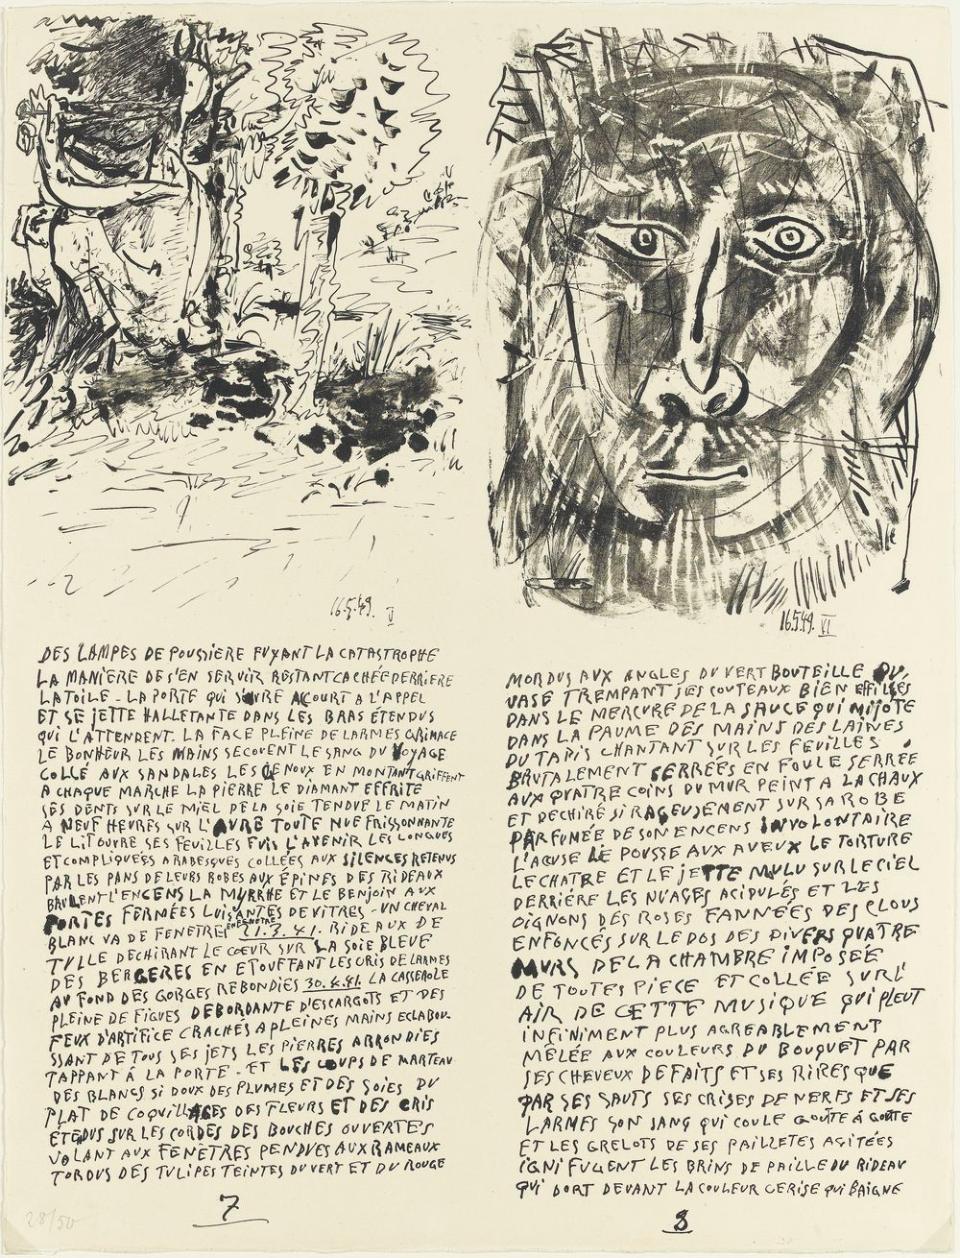 16.5.49. V
DES LAMPES DE POUSSIERE FUYANT LA CATASTROPHE
LA MANIERE DE S'EN SERVIR RESTANT CACHÉE DERRIERE
LA TOILE - LA PORTE QUI S'OUVRE ACOURT A L'APPEL
ET SE JETTE HALLETANTE DANS LES BRAS ÉTENDUS
QUI L'ATTENDENT. LA FACE PLEINE DE LARMES GRIMACE
LE BONHEUR LES MAINS SECOUENT LE SANG DU VOYAGE
COLLÉ AUX SANDALES LES GENOUX EN MONTANT GRIFFENT
A CHAQUE MARCHE LA PIERRE LE DIAMANT EFFRITE
SES DENTS SUR LE MIEL DE LA SOIE TENDUE LE MATIN
A NEUF HEURES SUR L' TOUTE NUE FRISSONNANTE
LE LIT OUVRE SES FEUILLES L'AVENIR LES LONGUES
ET COMPLIQUÉES ARABESQUES COLLÉES AUX SILENCES RETENUS
PAR LES PANS DE LEURS ROBES AUX ÉPINES DES RIDEAUX
BRULENT L'ENCENS LA MYRRHE ET LE BENJOIN AUX
PORTES FERMÉES LUISANTES DE VITRES - UN CHEVAL
BLANC VA DE FENETRE EN FENETRE 21.3.41. RIDEAUX DE
TULLE DECHIRANT LE COEUR SUR LA SOIE BLEUE
DES BERGERES EN ETOUFFANT LES CRIS DE LARMES
AU FOND DES GORGES REBONDIES 30.4.41. LA CASSEROLE
PLEINE DE FIGUES DEBORDANTE D'ESCARGOTS ET DES
FEUX D'ARTIFICE CRACHÉS A PLEINES MAINS ECLABOU-
SSANT DE TOUS SES JETS LES PIERRES ARRONDIES
TAPPANT À LA PORTE - ET LES COUPS DE MARTEAU
DES BLANCS SI DOUX DES PLUMES ET DES SOIES DU
PLAT DE COQUILLAGES DES FLEURS ET DES CRIS
ÉTENDUS SUR LES CORDES DES BOUCHES OUVERTES
VOLANT AUX FENÈTRES PENDUES AUX RAMEAUX
TORDUS DES TULIPES TEINTES DU VERT ET DU ROUGE
7
28/50
16.5.49. VI
MORDUS AUX ANGLES DU VERT BOUTEILLE DU
VASE TREMPANT SES COUTEAUX BIEN EFFILÉS
DANS LE MERCURE DE LA SAUCE QUI MIJOTE
DANS LA PAUME DES MAINS DES LAINES
DU TAPIS CHANTANT SUR LES FEUILLES
BRUTALEMENT SERRÉES EN FOULE SERRÉE
AUX QUATRE COINS DU MUR PEINT A LA CHAUX
ET DECHIRÉ SI RAGEUSEMENT SUR SA ROBE
PARFUMÉE DE SON ENCENS INVOLONTAIRE
L'ACUSE LE POUSSE AUX AVEUX LE TORTURE
LE CHATRE ET LE JETTE SUR LE CIEL
DERRIÉRE LES NUAGES ACIDULÉS ET LES
OIGNONS DES ROSES FANNÉES DES CLOUS
ENFONCÉS SUR LE DOS DES DIVERS QUATRE
MURS DE LA CHAMBRE IMPOSÉE
DE TOUTES PIECE ET COLLÉE SUR L'
AIR DE CETTE MUSIQUE QUI PLEUT
INFINIMENT PLUS AGREABLEMENT
MÊLÉE AUX COULEURS DU BOUQUET PAR
SES CHEVEUX DEFAITS ET SES RIRES QUE
PAR SES SAUTS SES CRISES DE NERFS ET SES
LARMES SON SANG QUI COULE GOUTE À GOUTE
ET LES GRELOTS DE SES PAILLETES AGITÉES
IGNIFUGENT LES BRINS DE PAILLE DU RIDEAU
QUI DORT DEVANT LA COULEUR CERISE QUI BAIGNE
8